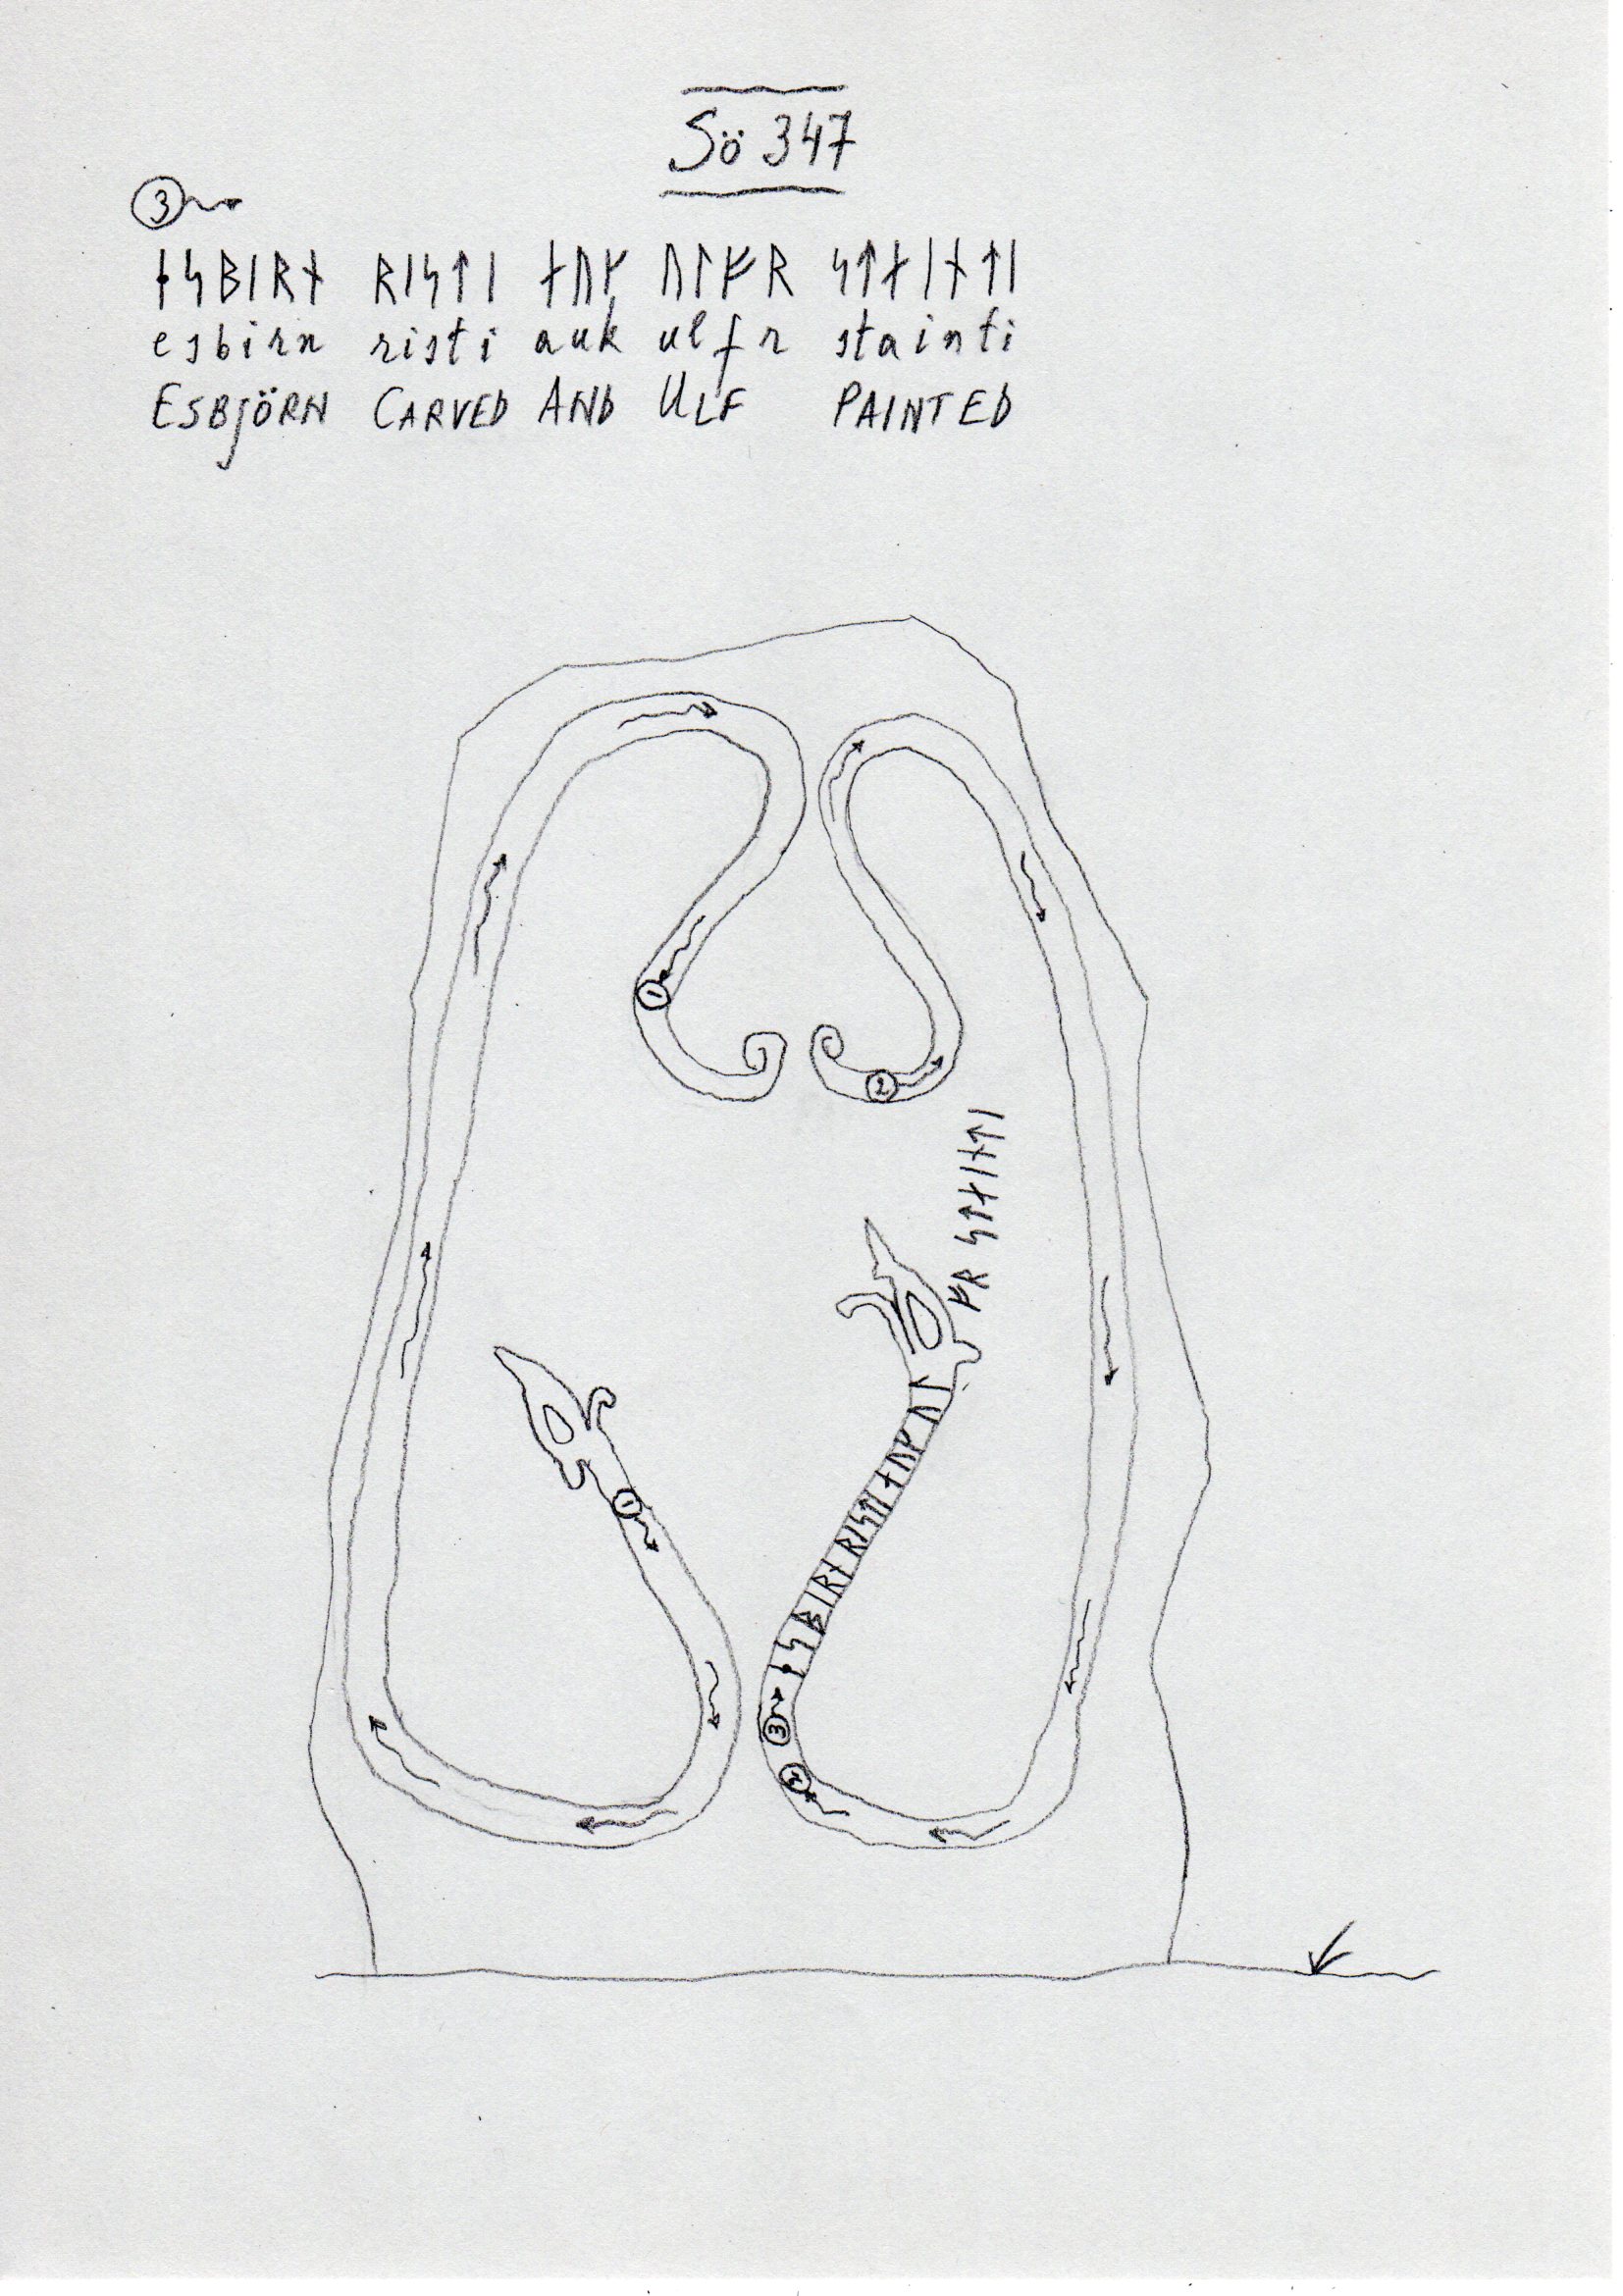 Sö 347
3
ᚽᛋᛒᛁᚱᚾ ᚱᛁᛋᛏᛁ ᛅᚢᚴ ᚢᛚᚠᚱ ᛋᛏᛅᛁᚾᛏᛁ
esbirn risti auk ulfr stainti
ESBJÖRN CARVED AND ULF PAINTED
1
2
ᚠᚱ ᛋᛏᛅᛁᚾᛏᛁ
1
ᚽᛋᛒᛁᚱᚾ ᚱᛁᛋᛏᛁ ᛅᚢᚴ ᚢᛚ
3
2